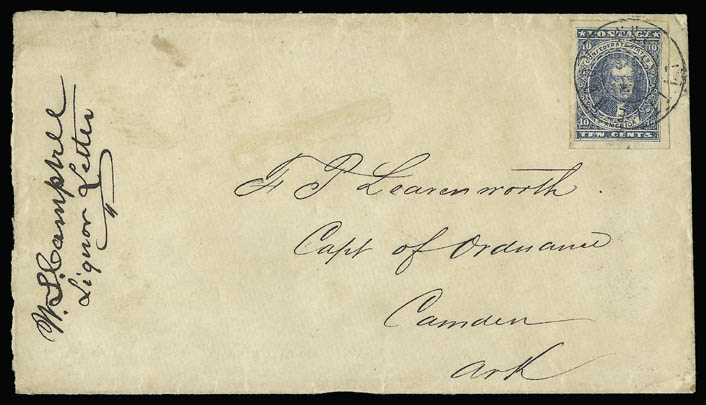 W. L. Campbell
Liquor Letter
POSTAGE
10 10
CONFEDERATE STATES
OF AMERICA
10 10
TEN CENTS
F P Leavenworth
Capt of Ordnance
Camden
Ark